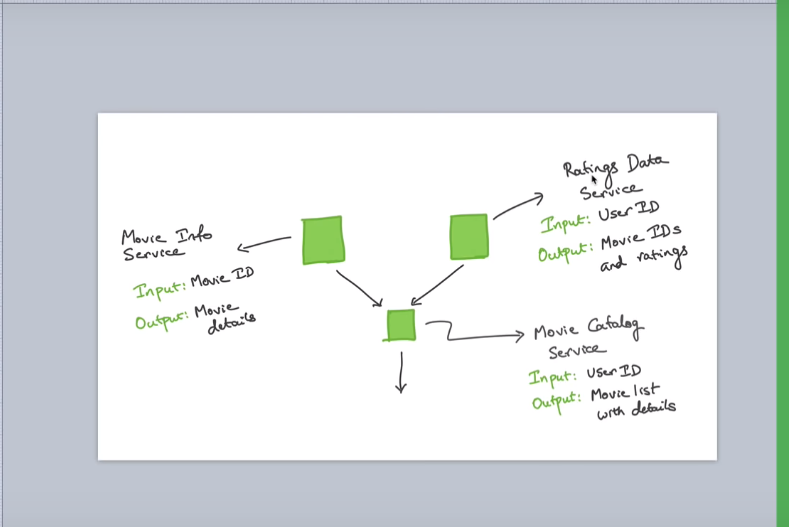 Movie Info
Service
Input: Movie ID
Output: Movie
details
Ratings Data
Service
Input: User ID
Output: Movie IDs
and ratings
Movie Catalog
Service
Input: User ID
Output: Movie list
with details